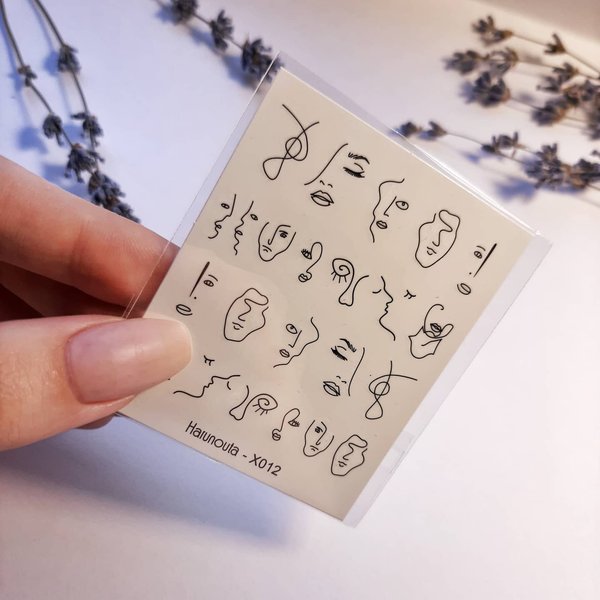 Harunouta - X012